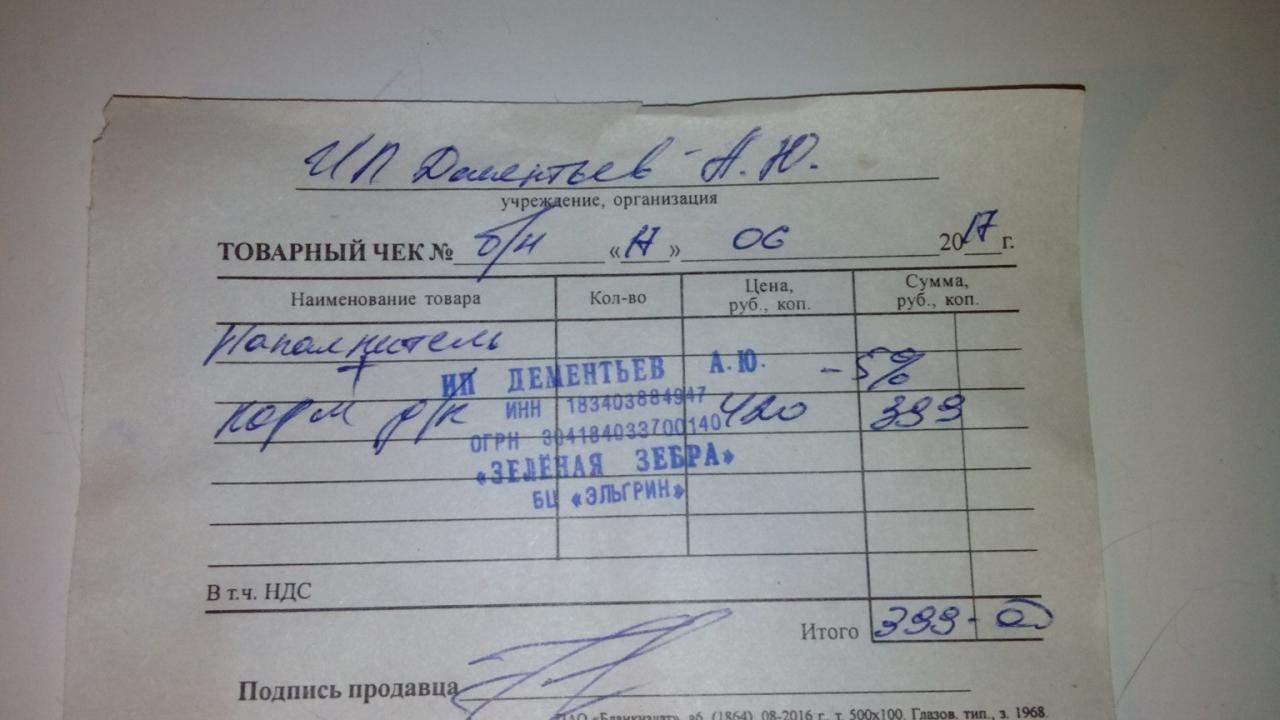 ИП Дементьев А.Ю.
учреждение, организация
ТОВАРНЫЙ ЧЕК № б/н «17» 06 2017 г.
Наименование товара Кол-во Цена, руб., коп. Сумма, руб., коп.
Наполнитель
+ -5%
корм д/к 420 399
ИП ДЕМЕНТЬЕВ А.Ю.
ИНН 183403884947
ОГРН 304184033700140
«ЗЕЛЁНАЯ ЗЕБРА»
БЦ «ЭЛЬГРИН»
В т.ч. НДС
Итого 399-0
Подпись продавца
08-2016 г., т. 500x100. Глазов. тип., з. 1968.